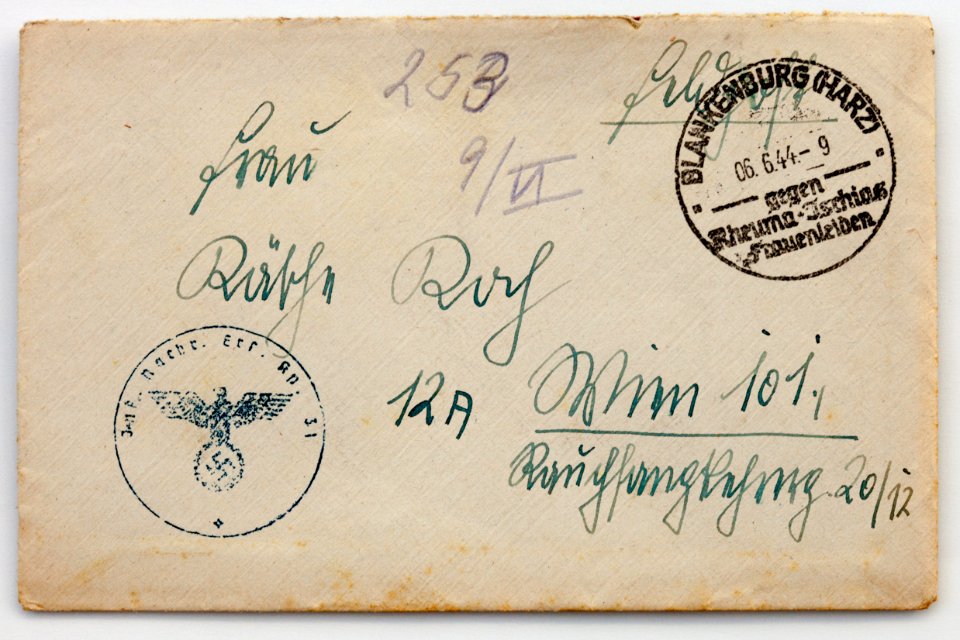 253
Feldpost
9/VI
Frau
Käthe Koch
12A
Wien 101,
Rauchfangkehrerg. 20/12
BLANKENBURG (HARZ)
06.6.44.- 9
gegen
Rheuma-Ischias
Frauenleiden
Inf. Nachr. Ers. Kp. 31